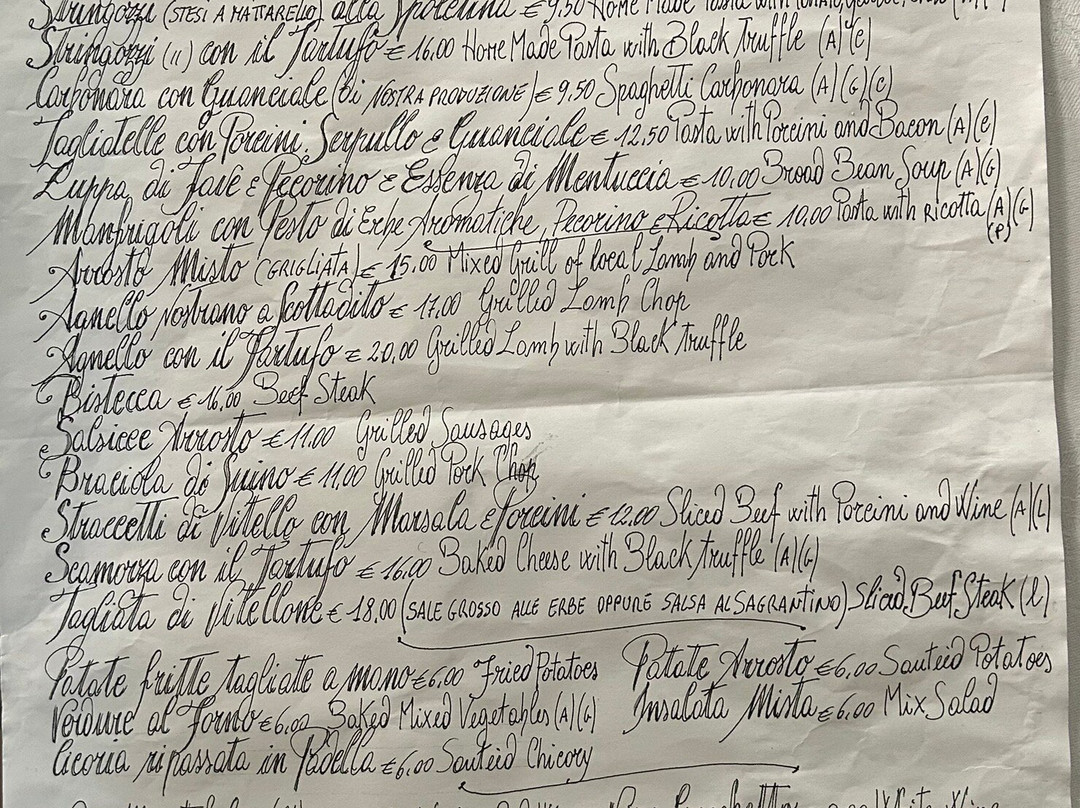 Stringozzi (STESI A MATTARELLO) alla Spoletina € 9,50 Home Made Pasta with
Stringozzi (II) con il Tartufo € 16.00 Home Made Pasta with Black Truffle (A)(C)
Carbonara con Guanciale (di NOSTRA PRODUZIONE) € 9,50 Spaghetti Carbonara (A)(G)(C)
Tagliatelle con Porcini, Serpullo e Guanciale € 12.50 Pasta with Porcini and Bacon (A)(C)
Zuppa di Fave e Pecorino e Essenza di Mentuccia € 10,00 Broad Bean Soup (A)(G)
Manfrigoli con Pesto di Erbe Aromatiche, Pecorino e Ricotta € 10.00 Pasta with Ricotta (A)(G)
(P)
Arrosto Misto (GRIGLIATA) € 15.00 Mixed Grill of local Lamb and Pork
Agnello Nostrano a Scottadito € 17,00 Grilled Lamb Chop
Agnello con il Tartufo € 20,00 Grilled Lamb with Black truffle
Bistecca € 16,00 Beef Steak
Salsicce Arrosto € 11.00 Grilled Sausages
Braciola di Suino € 11,00 Grilled Pork Chop
Straccetti di Vitello con Marsala e Porcini € 12.00 Sliced Beef with Porcini and Wine (A)(L)
Scamorza con il Tartufo € 16.00 Baked Cheese with Black truffle (A)(G)
Tagliata di Vitellone € 18.00 (SALE GROSSO ALLE ERBE OPPURE SALSA AL SAGRANTINO) Sliced Beef Steak (L)
Patate fritte tagliate a mano € 6,00 Fried Potatoes Patate Arrosto € 6,00 Sauteid Potatoes
Verdure al Forno € 6,00 Baked Mixed Vegetables (A)(G) Insalata Mista € 6,00 Mix Salad
Cicoria ripassata in Padella € 6,00 Sauteid Chicory